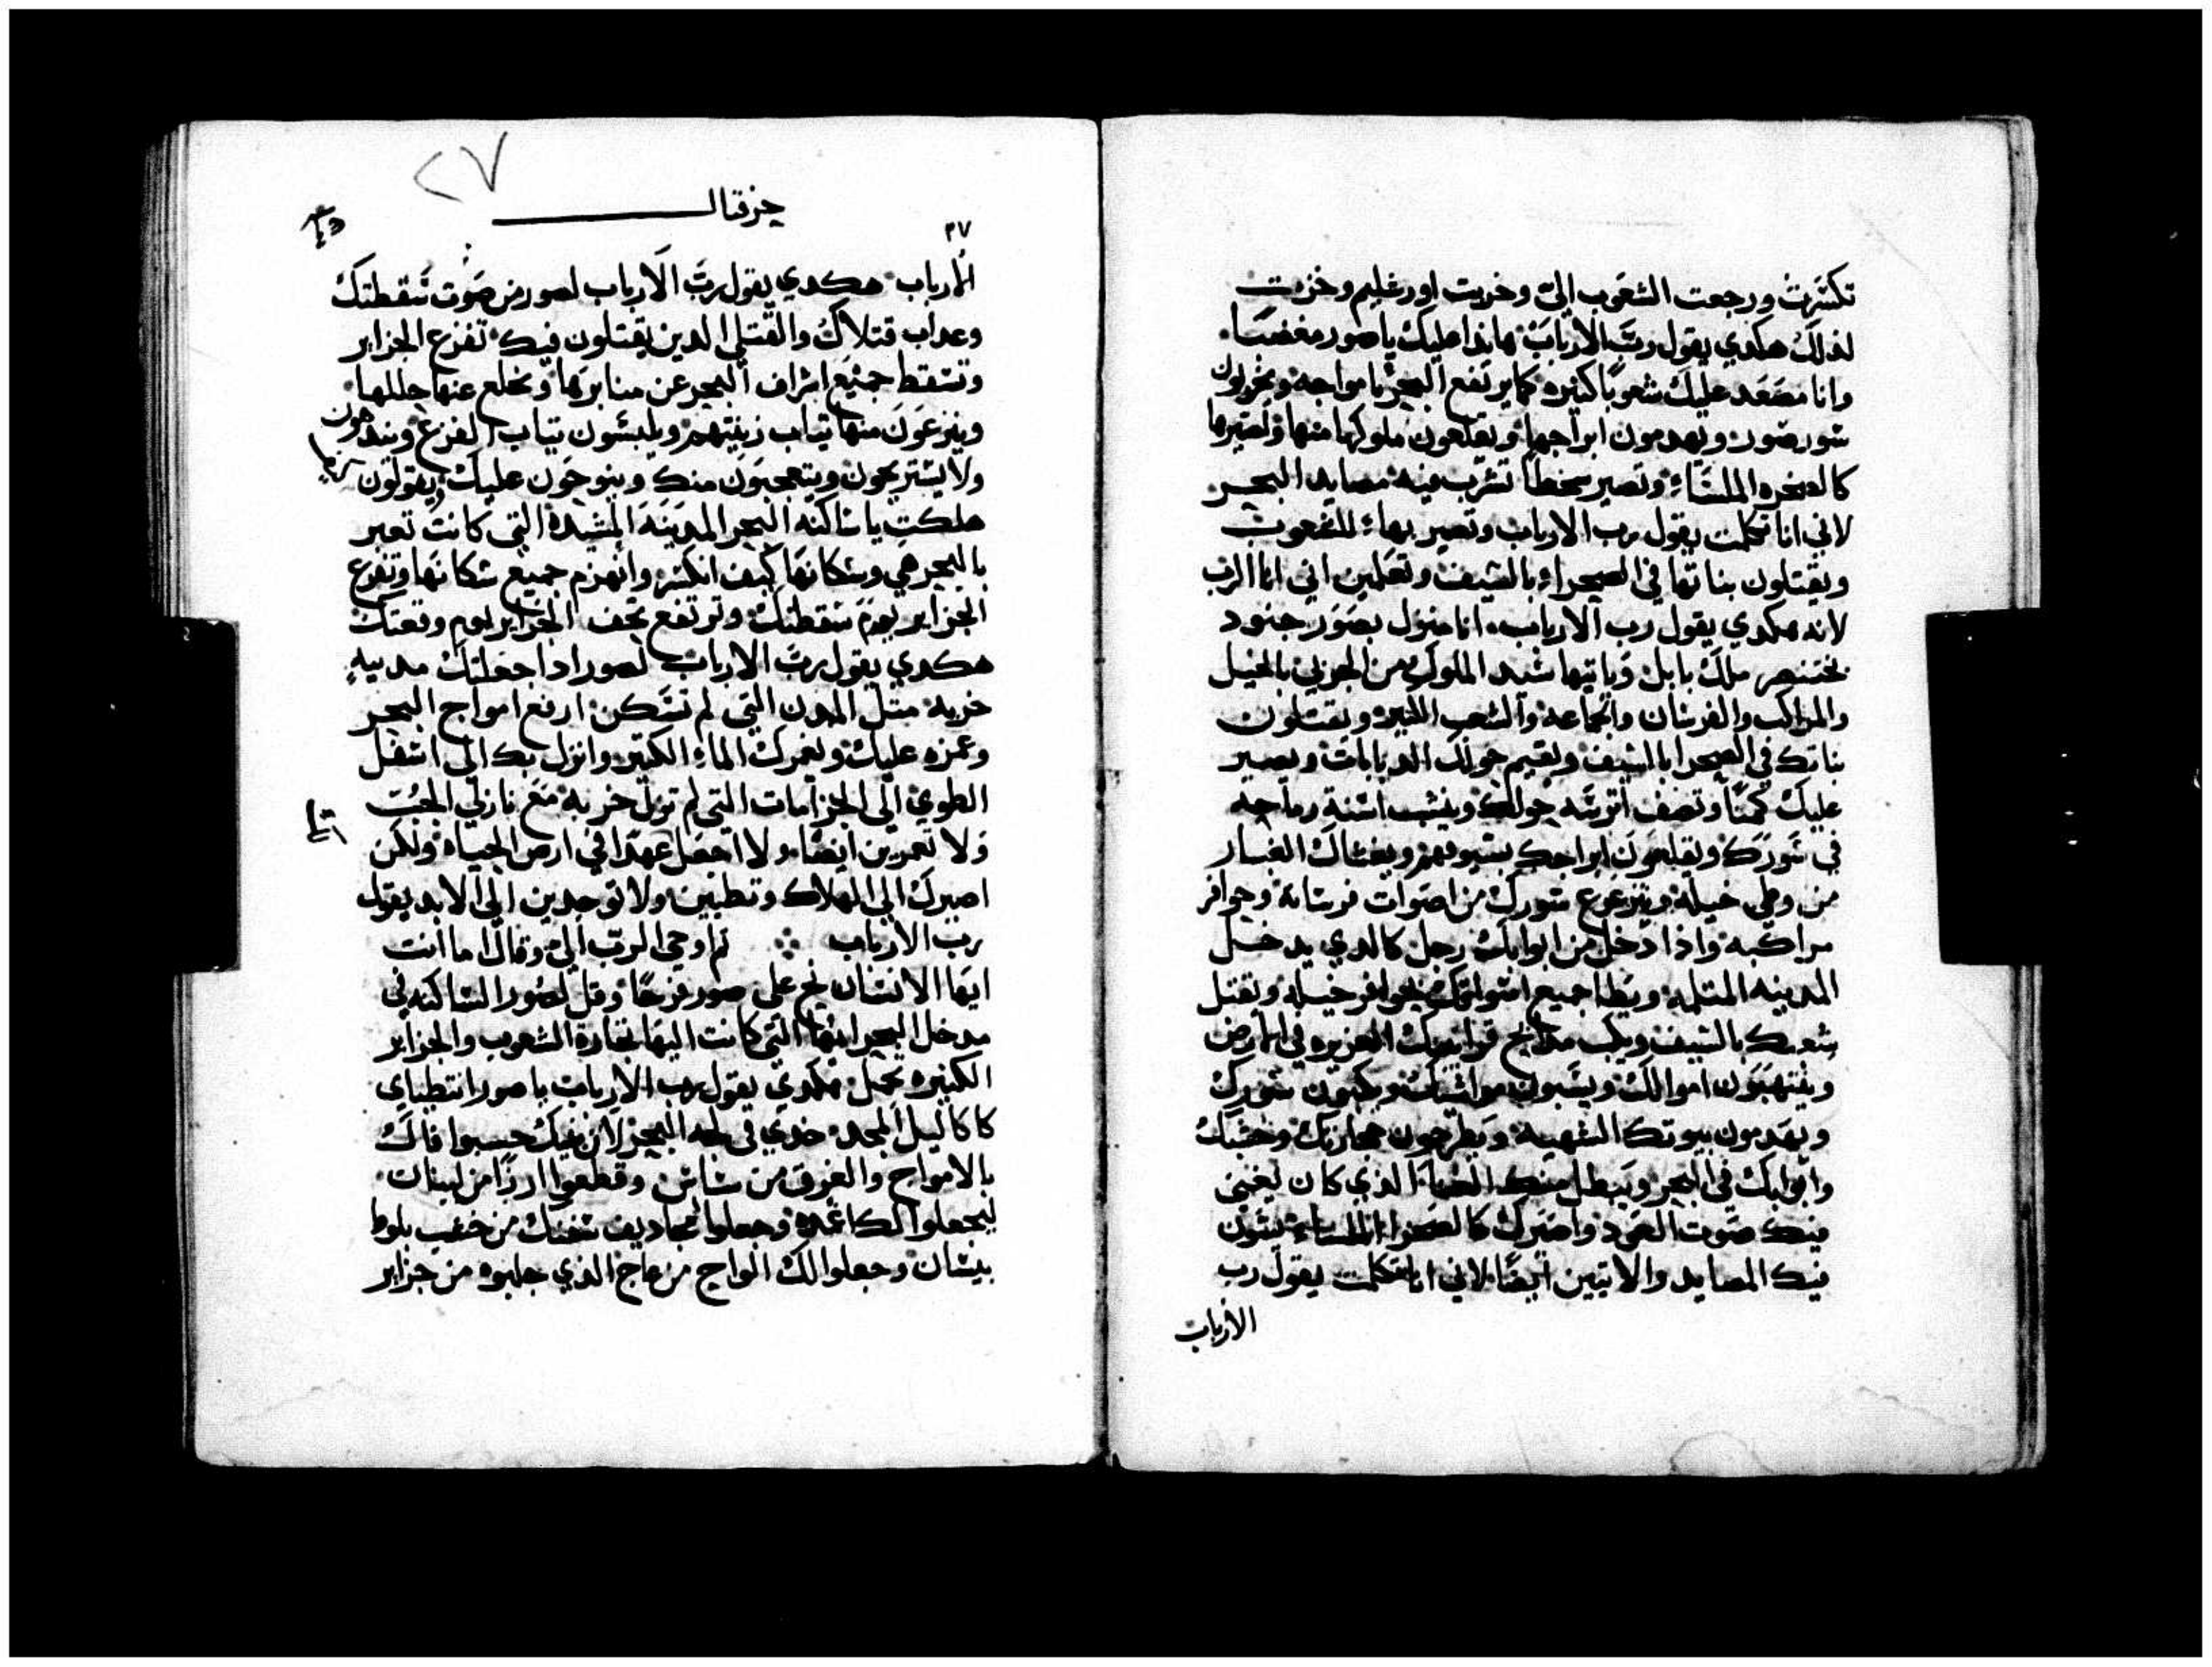 تكسرت ورجعت الشعوب الي وخربت اورشليم وخزيت
لذلك هكدي يقول رب الارباب هانذا عليك يا صور مغضبا
وانا مصعد عليك شعوبا كثيره كما يرتفع البحر بامواجه ويخربون
سور صور ويهدمون ابراجها ويقلعون ملوكها منها واصيرها
كالصخره الملساء وتصير سخطا تشرب فيه مصايد البحر
لاني انا تكلمت يقول رب الارباب وتصير بهاء للشعوب
ويقتلون بناتها في الصحراء بالسيف وتعلمين اني انا الرب
لانه هكدي يقول رب الارباب انا منزل بصور جنود
بختنصر ملك بابل وياتيها سيد الملوك من الجربي بالخيل
والمراكب والفرسان والجماعه والشعب الكثير ويقتلون
بناتك في الصحرا بالسيف ويقيم حولك الدبابات ويصير
عليك كمنا وتصف اترسه حولك وينشب اسنة رماحه
في سورك ويقلعون ابراجك بسيوفهم ويغشاك الغبار
من وطي خيله ويتزعزع سورك من اصوات فرسانه وحوافر
مراكبه واذا دخل من ابوابك رجل كالدي يدخل
المدينه المثلمه ويطا جميع اسواقك بحوافر خيله ويقتل
شعبك بالسيف ويكب مدابح قرابينك العزيزه في الارض
وينتهبون اموالك ويسبون مواشيك ويكبون سورك
ويهدمون بيوتك الشهيه ويطرحون حجارتك وخشبك
وابوابك في البحر ويبطل منك الغنا الذي كان يغني
فيك صوت العود واصيرك كالصخرا الملساء يشون
فيك المصايد والاتيين ايضا لاني انا تكلمت يقول رب
الارباب
٢٧
حزقيال
٢٧
الارباب هكدي يقول رب الارباب لصور من صوت سقطتك
وعداب قتلاك والقتلي الدين يقتلون فيك تفزع الجزاير
وتسقط جميع اشراف البحر عن منابرها ويخلع عنها حللها
وينزعون منها تياب زينتهم ويلبسون تياب الفزع ويندهون
ولا يستريحون ويتعجبون منك وينوحون عليك ويقولون
هلكت يا ساكنه البحر المدينه المشيده التي كانت تعبر
بالبحر هي وسكانها كيف انكسر وانهزم جميع سكانها وتفزع
الجزاير يوم سقطتك وترتفع تحف الجزاير يوم وقعتك
هكدي يقول رب الارباب لصور ادا جعلتك مدينه
خربه متل المدن التي لم تسكن ارفع امواج البحر
وغمره عليك وتغمرك الماء الكتير وانزل بك الي اسفل
الطوي الي الخرابات التي لم تزل خربه مع نازلي الجب
ولا تعمرين ايضا ولا اجعل عهدا في ارض الحياه ولكن
اصيرك الي الهلاك وتطلبين ولا توجدين الي الابد يقول
رب الارباب ثم اوحي الرب الي وقال اما انت
ايها الانسان نح علي صور نوحا وقل لصور الساكنه في
مدخل البحر انها التي كانت اليها تجارة الشعوب والجزاير
الكثيره تحمل هكدي يقول رب الارباب يا صور انتطباي
كاكاليل المجد خدي في لجه البحر لان بنيك حسبوا فالك
بالامواج والغرق من سانير وقطعوا ارزا من لبنان
ليجعلوا لك اعمده وجعلوا مجاديف سفنك من خشب بلوط
بيسان وجعلوا لك الواح من عاج الذي جلبوه من جزاير